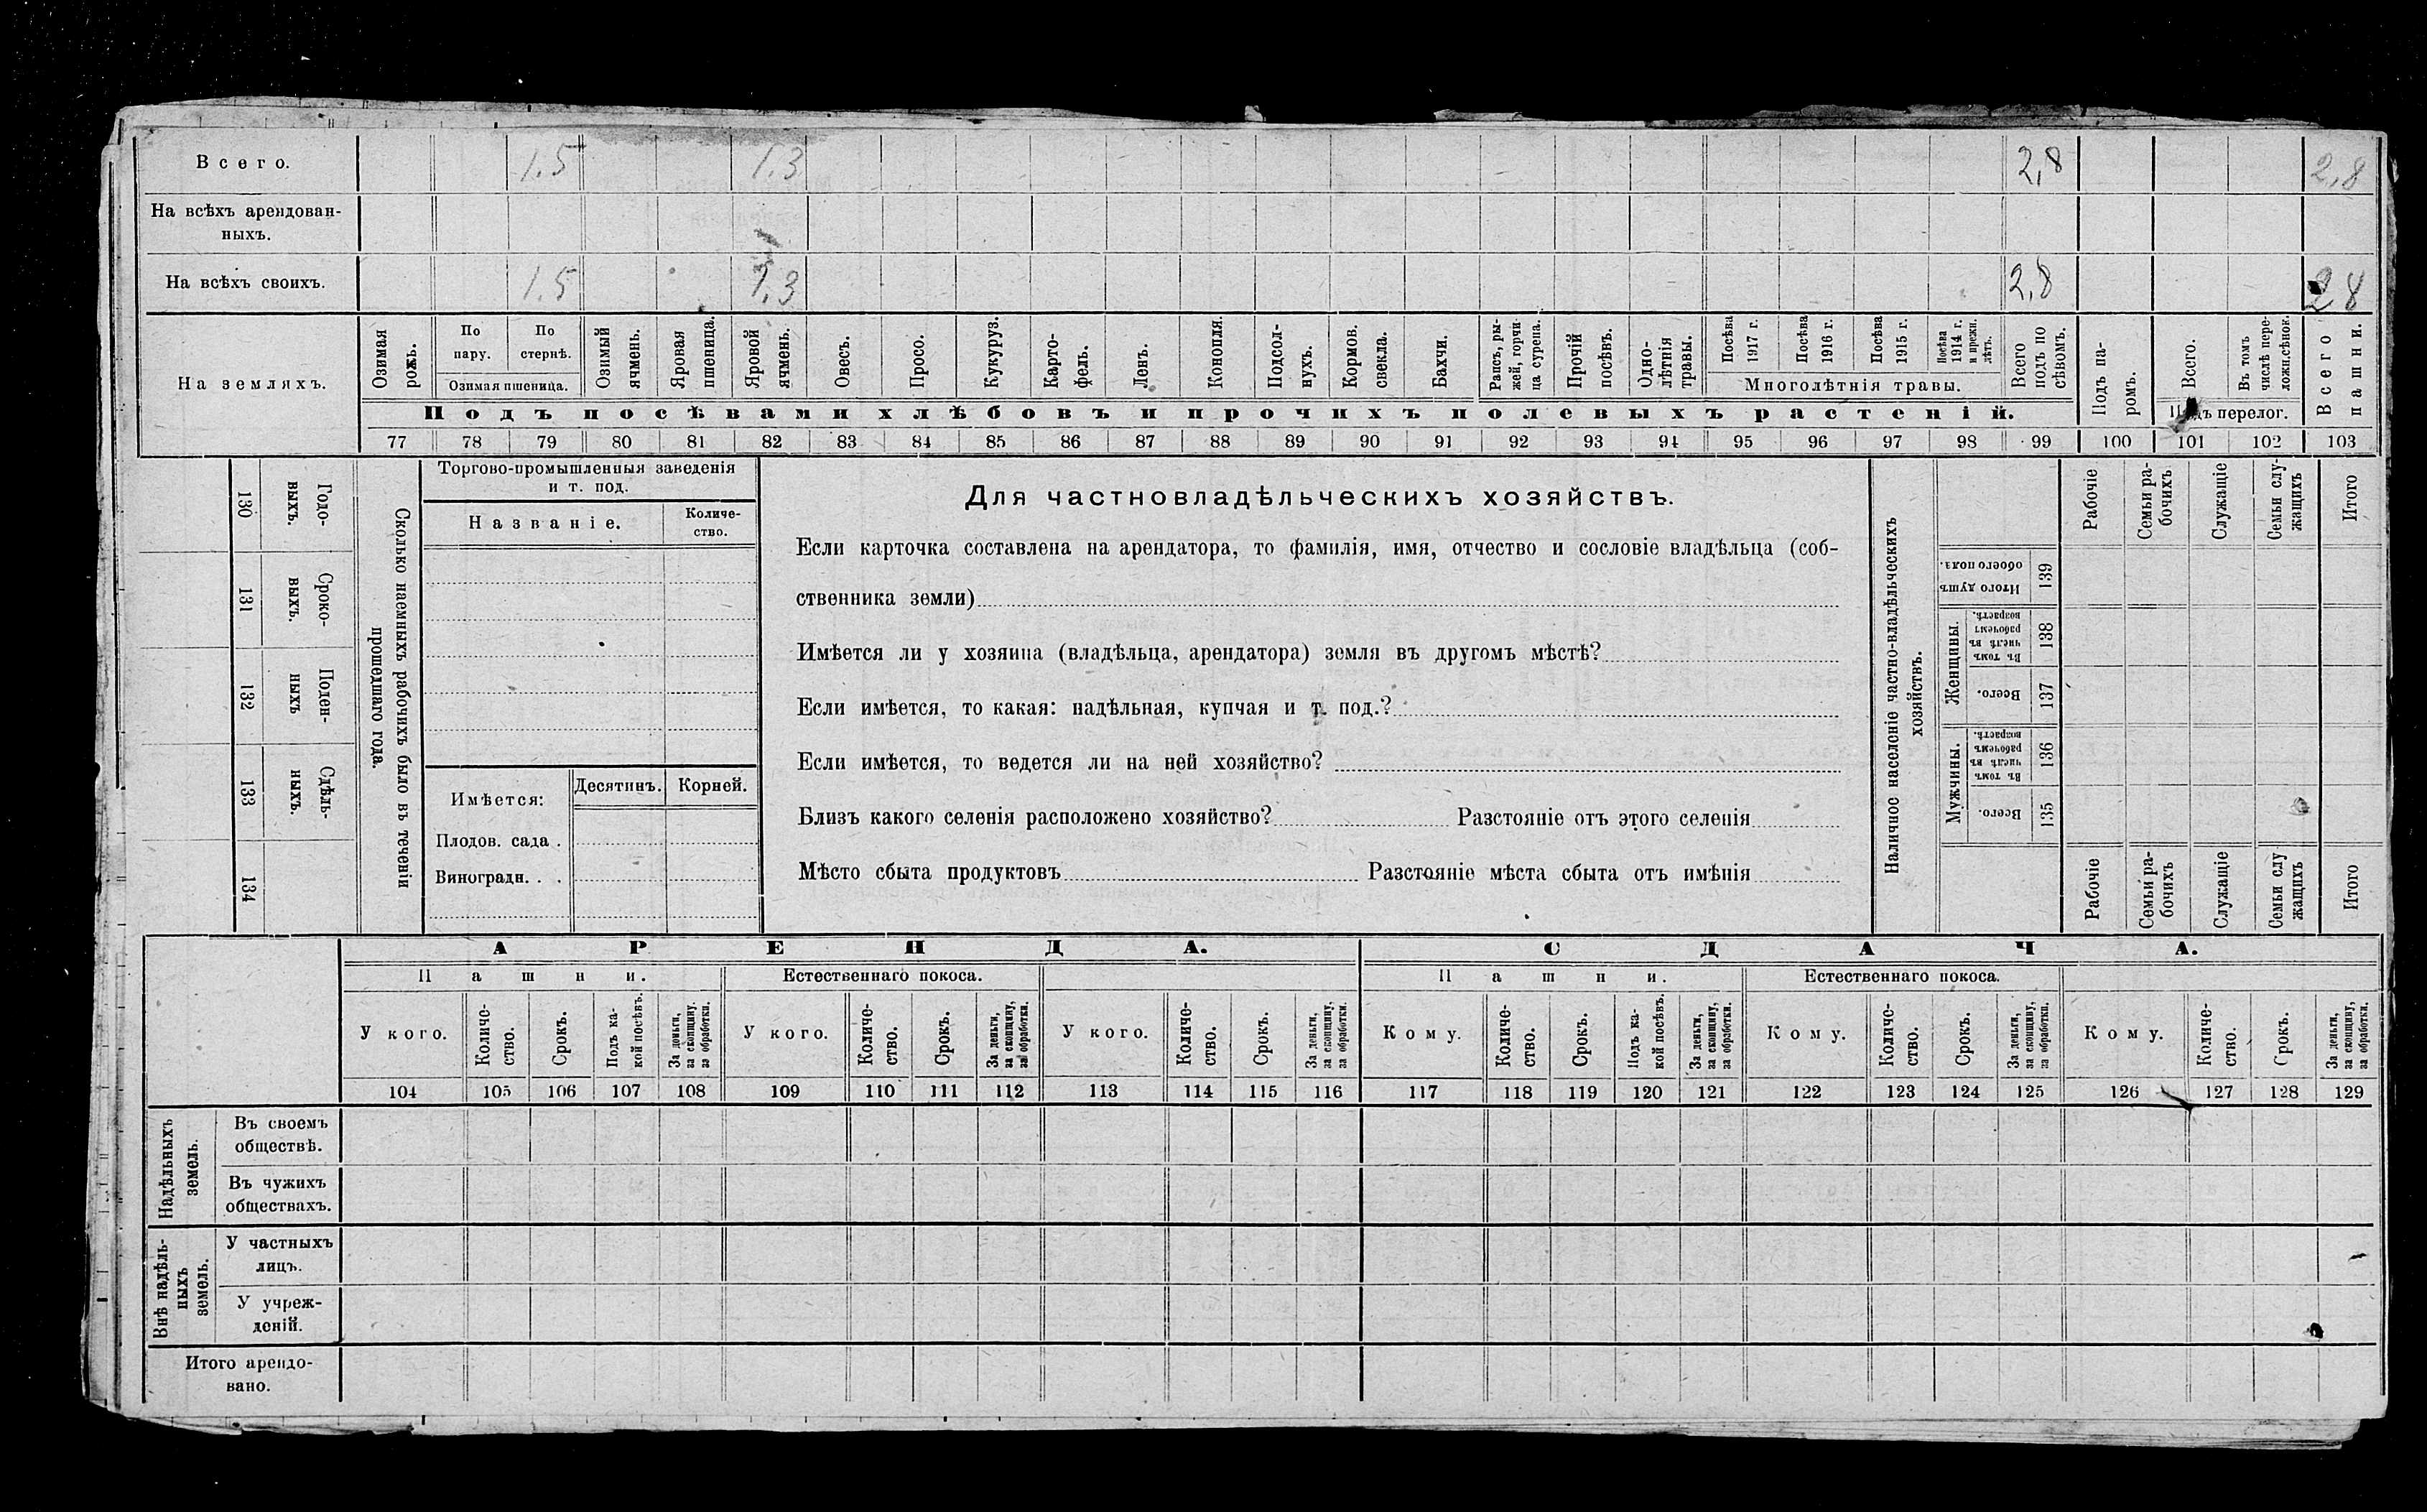 Всего. 1.5 1.3 2,8 2,8
На всѣхъ арендован-
ныхъ.
На всѣхъ своихъ. 1.5 1,3 2,8 2 8
На земляхъ.
Озимая
рожь.
По
пару.
По
стернѣ.
Озимая пшеница.
Озимый
ячмень.
Яровая
пшеница.
Яровой
ячмень.
Овесъ.
Просо.
Кукуруз.
Карто-
фель.
Ленъ.
Конопля.
Подсол-
нухъ.
Кормов.
свекла.
Бахчи.
Рапсъ, ры-
жей, горчи
ца сурепа.
Прочій
посѣвъ.
Одно-
лѣтнія
травы.
Посѣва
1917 г.
Посѣва
1916 г.
Посѣва
1915 г.
Посѣва
1914 г.
и прежн.
лѣтъ.
Многолѣтнія травы.
Всего
подъ по
сѣвомъ.
Подъ па-
ромъ.
Всего.
Въ томъ
числѣ пере-
ложн.сѣнок.
Подъ перелог.
Всего
пашни.
Подъ посѣвами хлѣбовъ и прочихъ полевыхъ растеній.
77 78 79 80 81 82 83 84 85 86 87 88 89 90 91 92 93 94 95 96 97 98 99 100 101 102 103
Годо-
выхъ.
130
Сроко-
выхъ.
131
Поден-
ныхъ
132
Сдѣль-
ныхъ.
133
134
Сколько наемныхъ рабочихъ было въ теченіи
прошедшаго года.
Торгово-промышленныя заведенія
и т. под.
Названіе.
Количе-
ство.
Имѣется:
Десятинъ. Корней.
Плодов. сада .
Виноградн. . .
Для частновладѣльческихъ хозяйствъ.
Если карточка составлена на арендатора, то фамилія, имя, отчество и сословіе владѣльца (соб-
ственника земли)
Имѣется ли у хозяина (владѣльца, арендатора) земля въ другомъ мѣстѣ?
Если имѣется, то какая: надѣльная, купчая и т. под.?
Если имѣется, то ведется ли на ней хозяйство?
Близъ какого селенія расположено хозяйство? Разстояніе отъ этого селенія
Мѣсто сбыта продуктовъ Разстояніе мѣста сбыта отъ имѣнія
Наличное населеніе частно-владѣльческихъ
хозяйствъ.
Рабочіе
Семьи ра-
бочихъ
Служащіе
Семьи слу-
жащихъ
Итого
Итого душъ
обоего пола.
139
Женщины.
Въ томъ
числѣ въ
рабочемъ
возрастѣ.
138
Всего.
137
Мужчины.
Въ томъ
числѣ въ
рабочемъ
возрастѣ.
136
Всего.
135
Рабочіе
Семьи ра-
бочихъ
Служащіе
Семьи слу
жащихъ
Итого
АРЕНДА. СДАЧА.
Пашни. Естественнаго покоса. Пашни. Естественнаго покоса.
У кого.
Количе-
ство.
Срокъ.
Подъ ка-
кой посѣвъ.
За деньги,
за скопщину,
за обработки.
У кого.
Количе-
ство.
Срокъ.
За деньги,
за скопщину,
за обработки.
У кого.
Количе-
ство.
Срокъ.
За деньги,
за скопщину,
за обработки.
Кому.
Количе-
ство.
Срокъ.
Подъ ка-
кой посѣвъ.
За деньги,
за скопщину,
за обработки.
Кому.
Количе-
ство.
Срокъ.
За деньги,
за скопщину,
за обработки.
Кому.
Количе-
ство.
Срокъ.
За деньги,
за скопщину,
за обработки.
104 105 106 107 108 109 110 111 112 113 114 115 116 117 118 119 120 121 122 123 124 125 126 127 128 129
Надѣльныхъ
земель.
Въ своемъ
обществѣ.
Въ чужихъ
обществахъ.
Внѣ надѣль-
ныхъ
земель.
У частныхъ
лицъ.
У учреж-
деній.
Итого арендо-
вано.